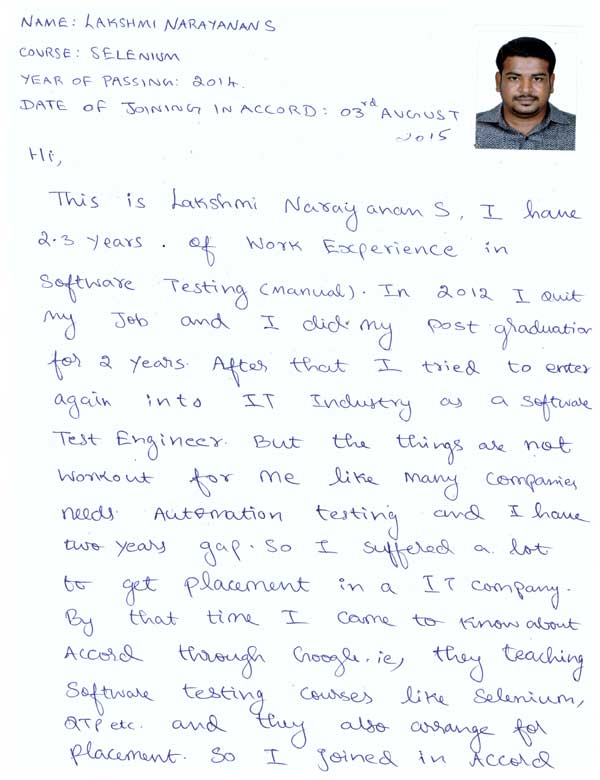 NAME: LAKSHMI NARAYANAN S
COURSE: SELENIUM
YEAR OF PASSING: 2014.
DATE OF JOINING IN ACCORD: 03rd AUGUST
2015
Hi,
This is Lakshmi Narayanan S, I have
2.3 years. of Work Experience in
Software Testing (manual). In 2012 I quit
my Job and I did my post graduation
for 2 years. After that I tried to enter
again into IT Industry as a software
Test Engineer. But the things are not
workout for me like many companies
needs Automation testing and I have
two years gap. So I suffered a lot
to get placement in a IT company.
By that time I came to know about
Accord through Google. ie, they teaching
Software testing courses like Selenium,
QTP etc. and they also arrange for
placement. So I joined in Accord